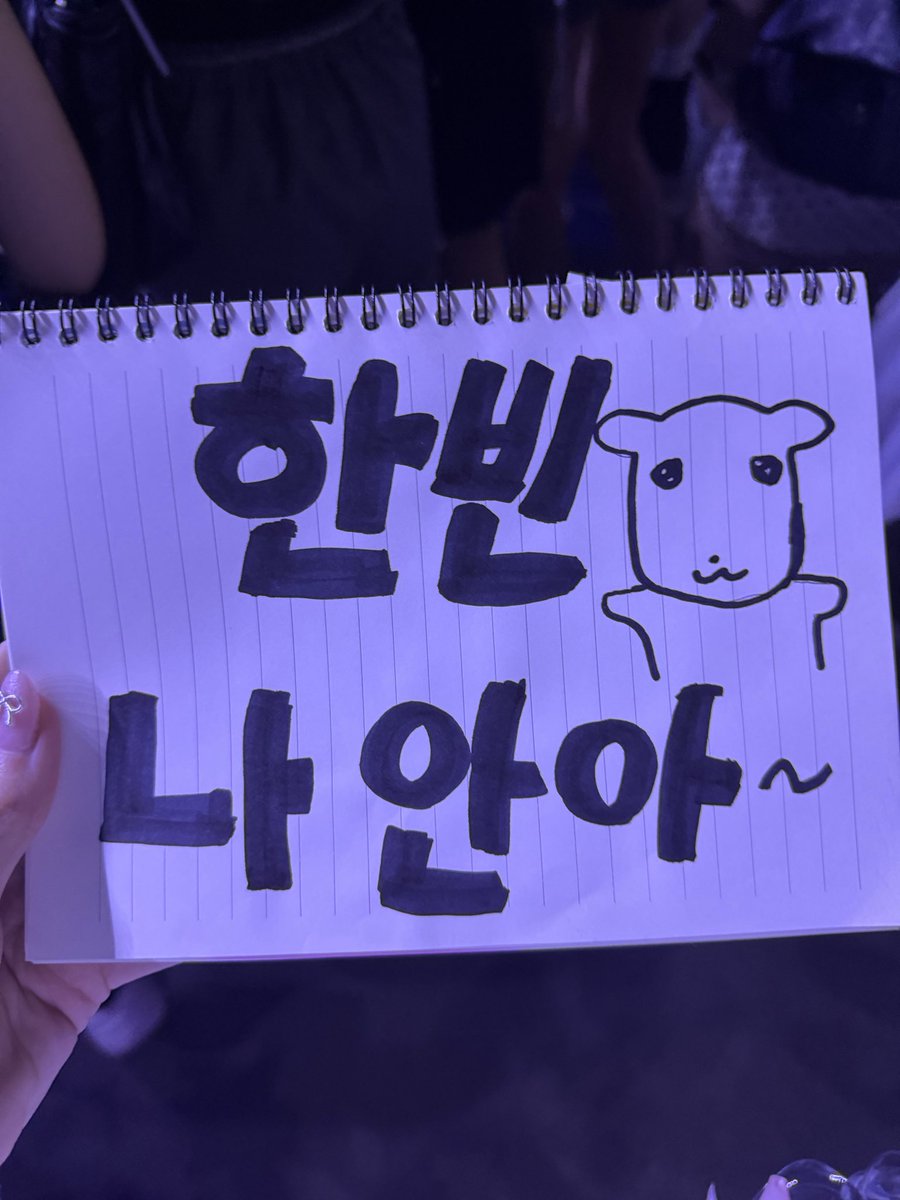 한빈
나 안아~